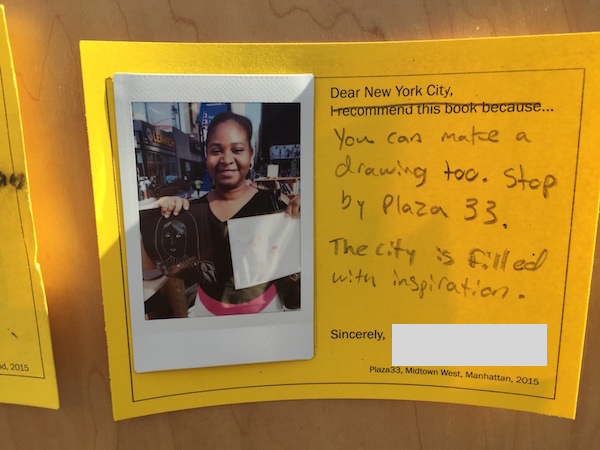 Dear New York City,
I recommend this book because...
You can make a
drawing too. Stop
by Plaza 33.
The city is filled
with inspiration.
Sincerely,
Plaza33, Midtown West, Manhattan, 2015
d, 2015